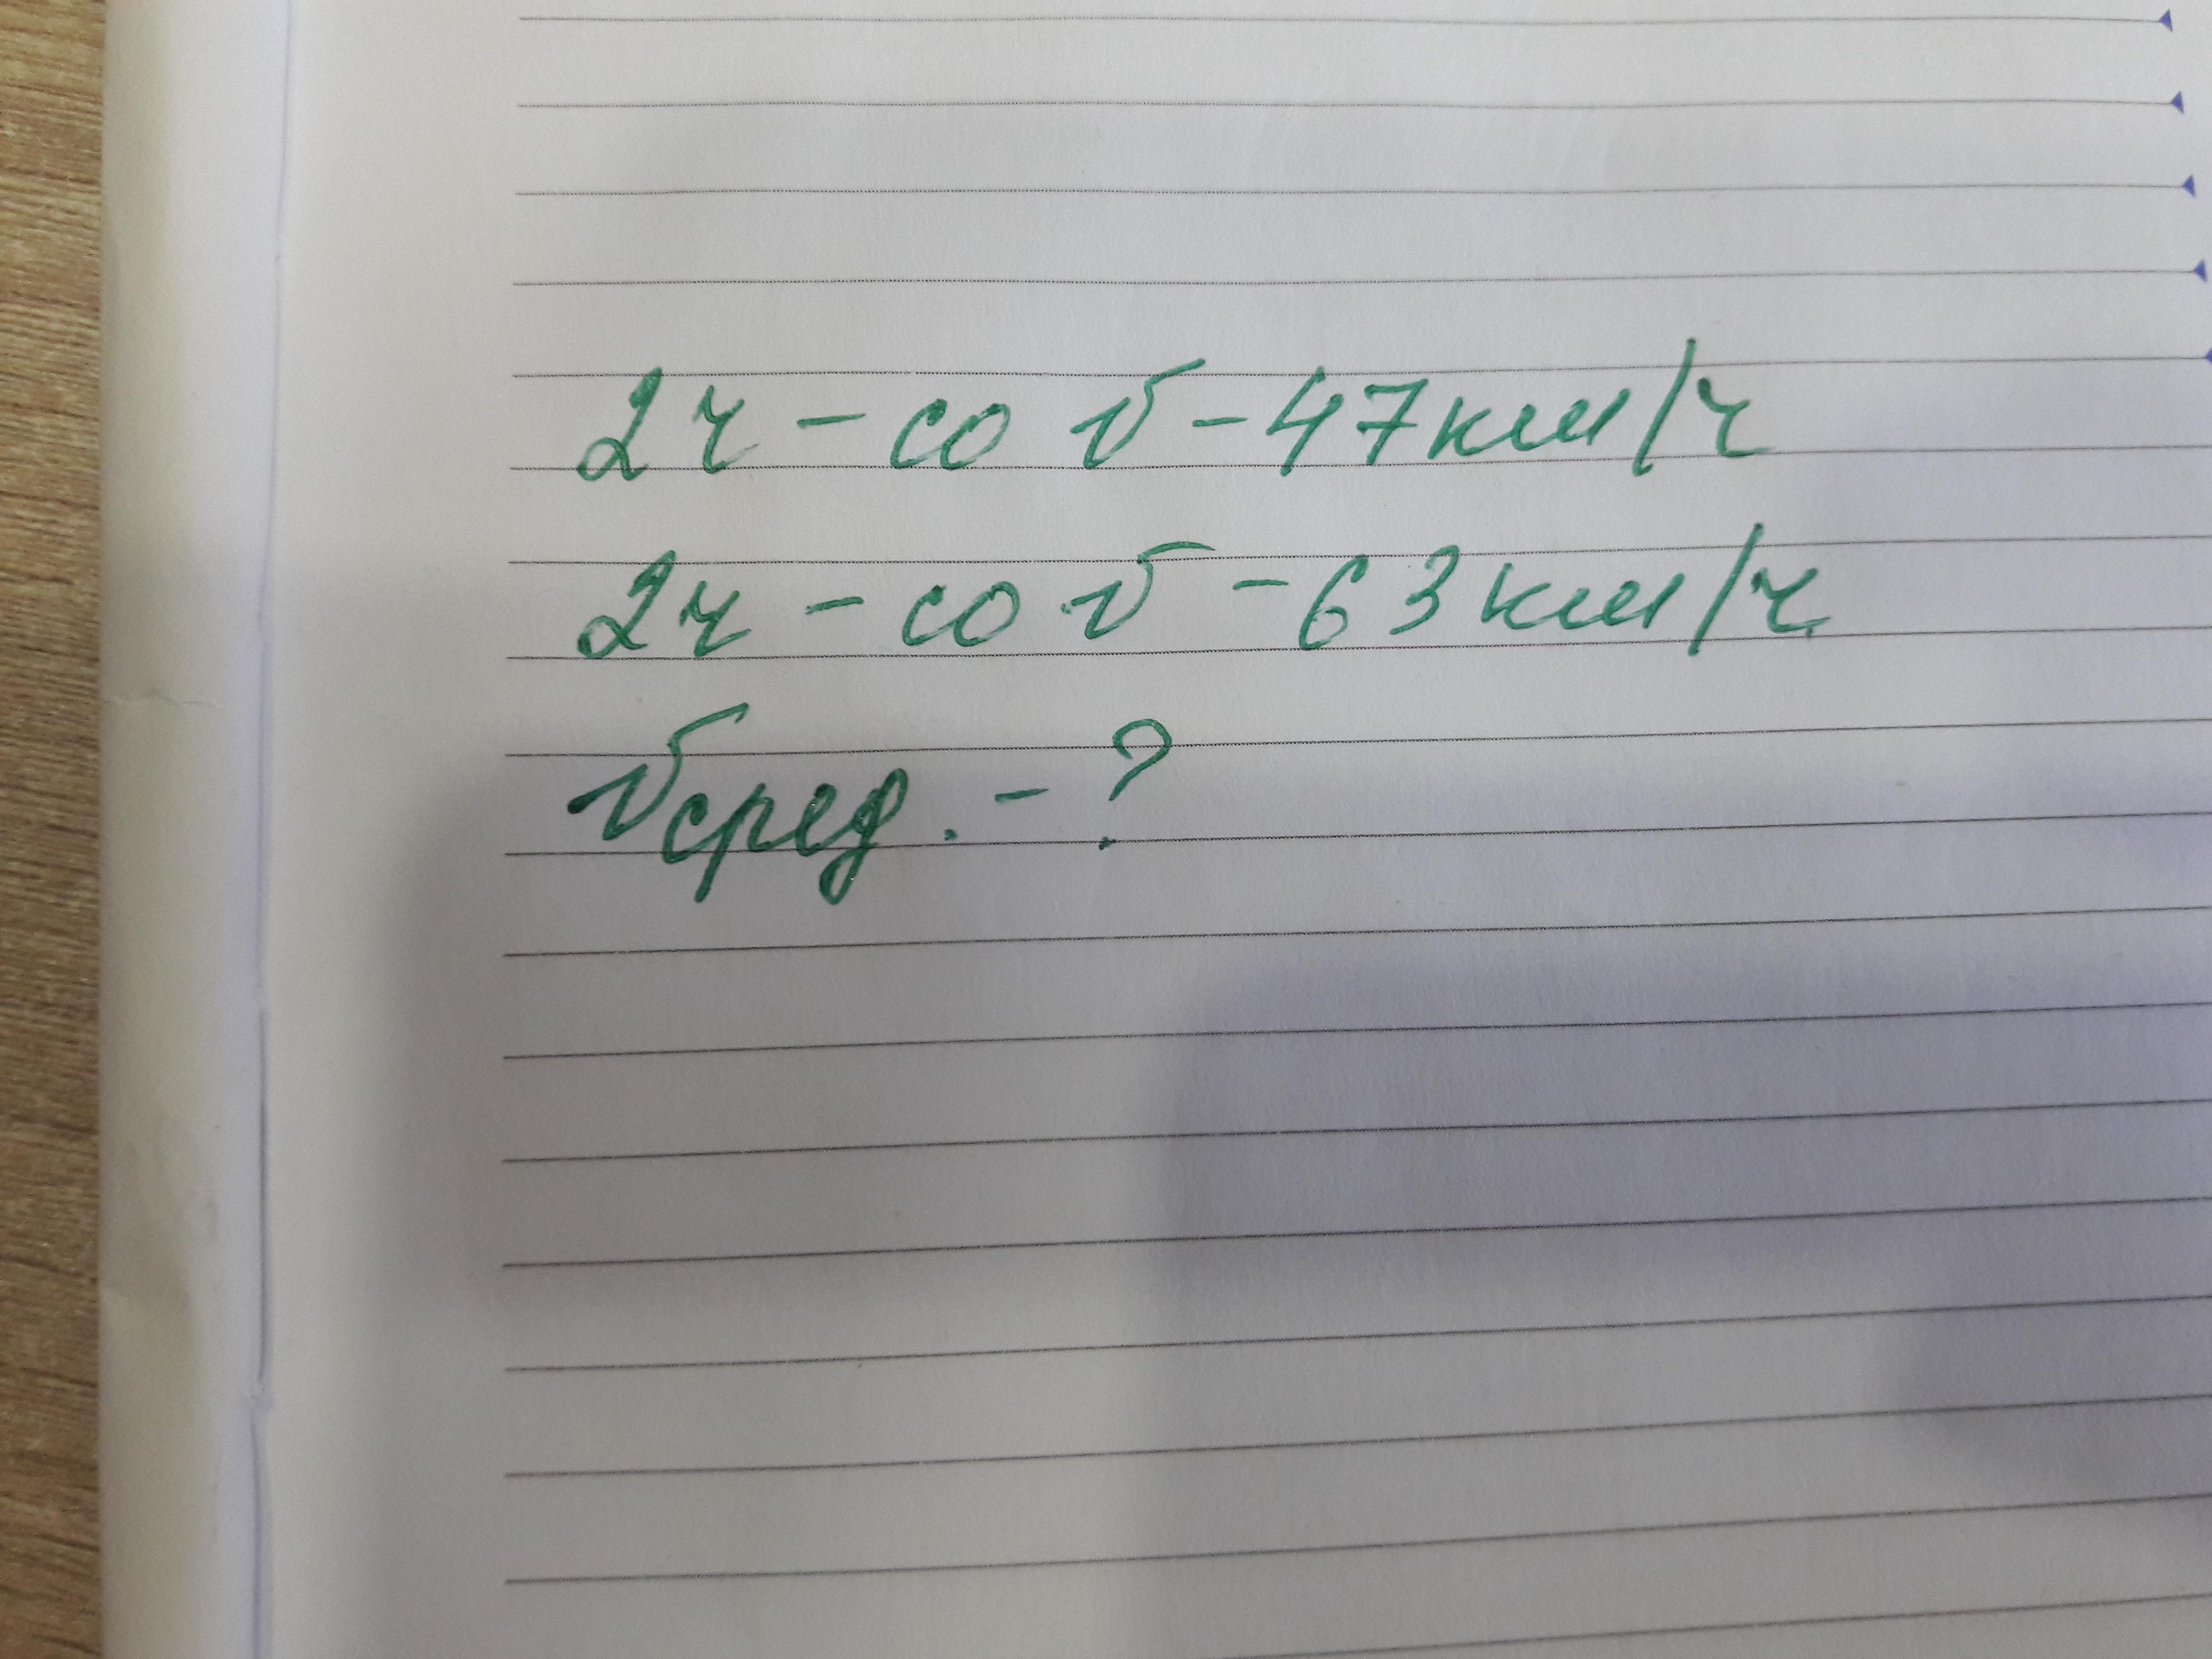 2ч - со v - 47км/ч
2ч - со v - 63км/ч
vсред. - ?